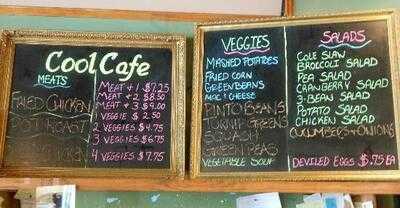 Cool Cafe
MEATS
FRIED CHICKEN
POT ROAST
CHICKEN
MEAT + 1 $7.25
MEAT + 2 $8.50
MEAT + 3 $9.00
1 VEGGIE $2.50
2 VEGGIES $4.75
3 VEGGIES $6.75
4 VEGGIES $7.75
VEGGIES
MASHED POTATOES
FRIED CORN
GREEN BEANS
MAC! CHEESE
PINTO BEANS
TURNIP GREENS
SQUASH
GREEN PEAS
VEGETABLE SOUP
SALADS
COLE SLAW
BROCCOLI SALAD
PEA SALAD
CRANBERRY SALAD
3-BEAN SALAD
POTATO SALAD
CHICKEN SALAD
CUCUMBERS & ONIONS
DEVILED EGGS $.75 EA